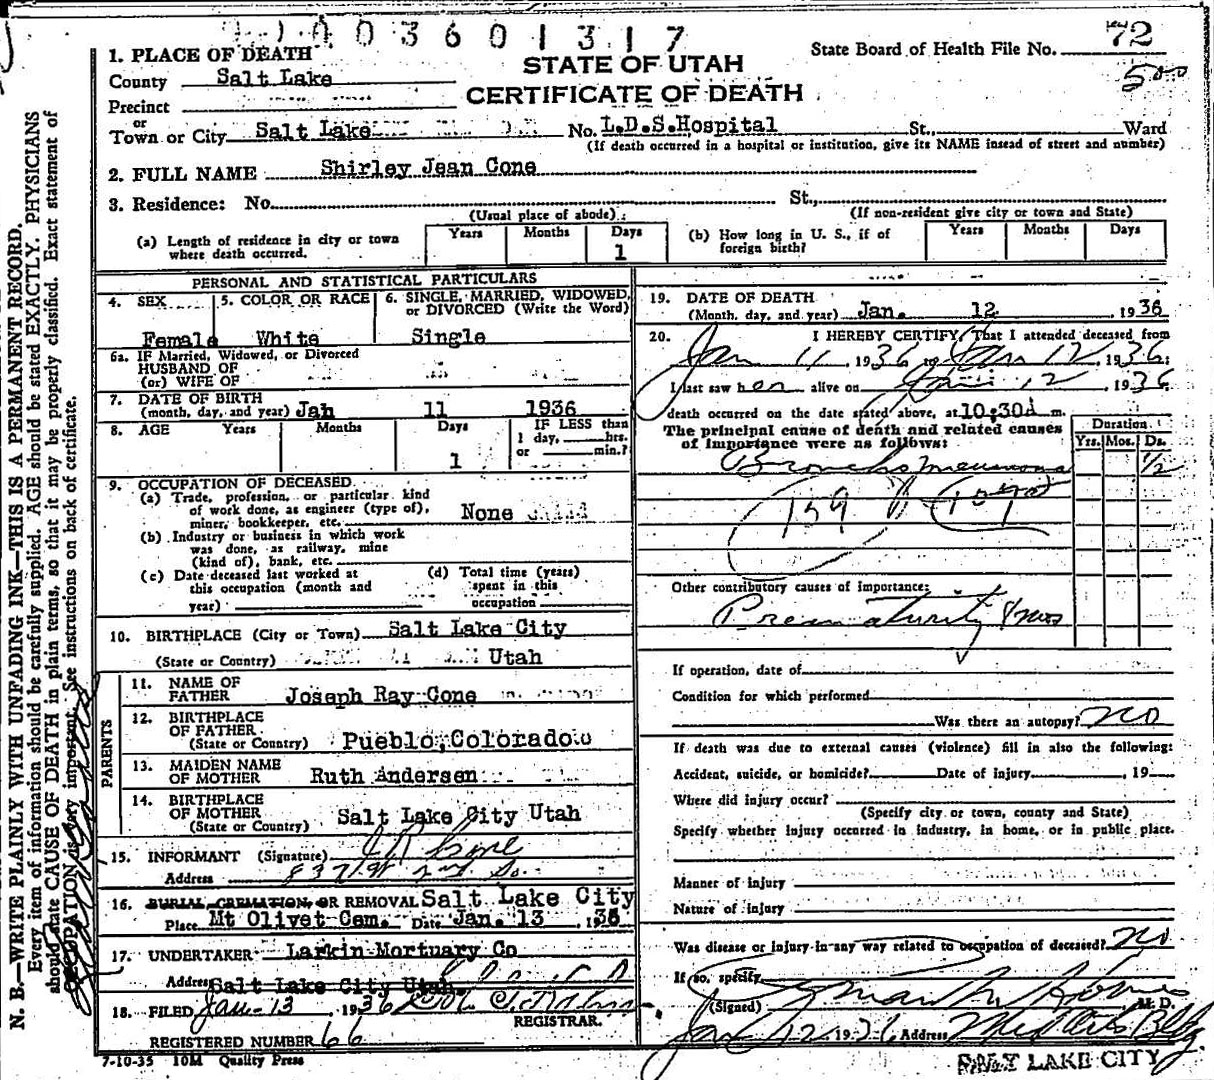 3601317
1. PLACE OF DEATH
STATE OF UTAH
CERTIFICATE OF DEATH
State Board of Health File No. 72
500
County Salt Lake
Precinct
or
Town or City Salt Lake No. L.D.S.Hospital St., Ward
(If death occurred in a hospital or institution, give its NAME instead of street and number)
2. FULL NAME Shirley Jean Cone
3. Residence: No. St.,
(Usual place of abode) (If non-resident give city or town and State)
(a) Length of residence in city or town where death occurred. Years Months Days 1
(b) How long in U. S., if of foreign birth? Years Months Days
PERSONAL AND STATISTICAL PARTICULARS
4. SEX 5. COLOR OR RACE 6. SINGLE, MARRIED, WIDOWED, or DIVORCED (Write the Word)
Female White Single
6a. IF Married, Widowed, or Divorced
HUSBAND OF
(or) WIFE OF
7. DATE OF BIRTH
(month, day, and year) Jan 11 1936
8. AGE Years Months Days IF LESS than
1 day, hrs.
or min.?
1
9. OCCUPATION OF DECEASED
(a) Trade, profession, or particular kind
of work done, as engineer (type of),
miner, bookkeeper, etc. None
(b) Industry or business in which work
was done, as railway, mine
(kind of), bank, etc.
(c) Date deceased last worked at
this occupation (month and
year)
(d) Total time (years)
spent in this
occupation
10. BIRTHPLACE (City or Town) Salt Lake City
(State or Country) Utah
PARENTS
11. NAME OF
FATHER Joseph Ray Cone
12. BIRTHPLACE
OF FATHER
(State or Country) Pueblo, Colorado
13. MAIDEN NAME
OF MOTHER Ruth Andersen
14. BIRTHPLACE
OF MOTHER
(State or Country) Salt Lake City Utah
15. INFORMANT (Signature) J R Cone
Address 837 W 2nd So.
16. BURIAL, CREMATION, OR REMOVAL Salt Lake City
Place Mt Olivet Cem. Date Jan. 13 , 1936
17. UNDERTAKER Larkin Mortuary Co
Address Salt Lake City Utah
18. FILED Jan-13 , 1936
REGISTRAR.
REGISTERED NUMBER 66
7-10-35 10M Quality Press
19. DATE OF DEATH
(Month, day, and year) Jan. 12 , 1936
20. I HEREBY CERTIFY, That I attended deceased from
Jan 11 , 1936 to Jan 12 , 1936;
I last saw her alive on Jan 12 , 1936
death occurred on the date stated above, at 10:30A m.
The principal cause of death and related causes
of importance were as follows:
Duration
Yrs. Mos. Ds.
Bronchopneumonia 1/2
159 107a
Other contributory causes of importance:
Prematurity
If operation, date of
Condition for which performed
Was there an autopsy? no
If death was due to external causes (violence) fill in also the following:
Accident, suicide, or homicide? Date of injury , 19
Where did injury occur?
(Specify city or town, county and State)
Specify whether injury occurred in industry, in home, or in public place.
Manner of injury
Nature of injury
Was disease or injury in any way related to occupation of deceased? no
If so, specify
(Signed) M. D.
Jan 12 1936 Address Med Arts Bldg
SALT LAKE CITY
N. B.—WRITE PLAINLY WITH UNFADING INK—THIS IS A PERMANENT RECORD.
Every item of information should be carefully supplied. AGE should be stated EXACTLY. PHYSICIANS
should state CAUSE OF DEATH in plain terms, so that it may be properly classified. Exact statement of
OCCUPATION is very important. See instructions on back of certificate.